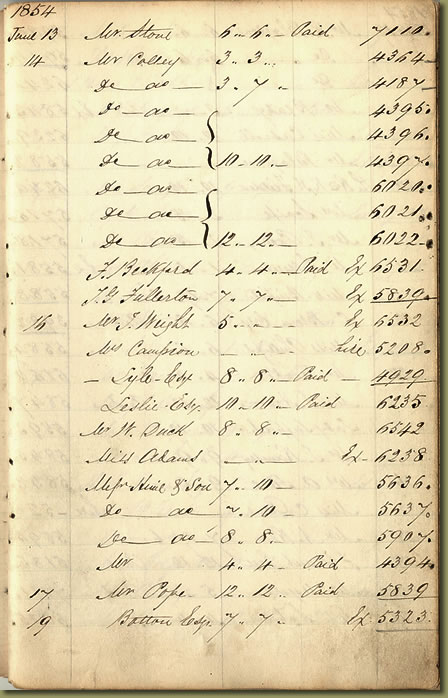 1854
June 13 Mr Stone 6 " 6 " — Paid 7110
14 Mr Colley 3 " 3 " 4364
Do do 3 " 7 " 4187
Do do 4395
Do do 4396
Do do 10 " 10 " 4397
Do do 6020
Do do 6021
Do do 12 " 12 " — 6022
F. Beckford 4 " 4 " — Paid Ex 6531
J.G Fullerton 7 " 7 " — Ex 5839
16 Mr J. Wright 5 " " — Ex 6532
Mrs Campion — " — Hire 5208
— Esq 8 " 8 " — Paid — 4929
Leslie Esq 10 " 10 " — Paid 6235
Mr W. Duck 8 " 8 " — 6542
Miss Adams — " — Ex 6238
Messr & Son 7 " 10 — 5636
Do do 7 " 10 5637
Do do 8 " 8 " 5907
Mr 4 " 4 " Paid 4394
17 Mr Pope 12 " 12 " Paid 5839
19 Esq 7 " 7 " Ex 5323